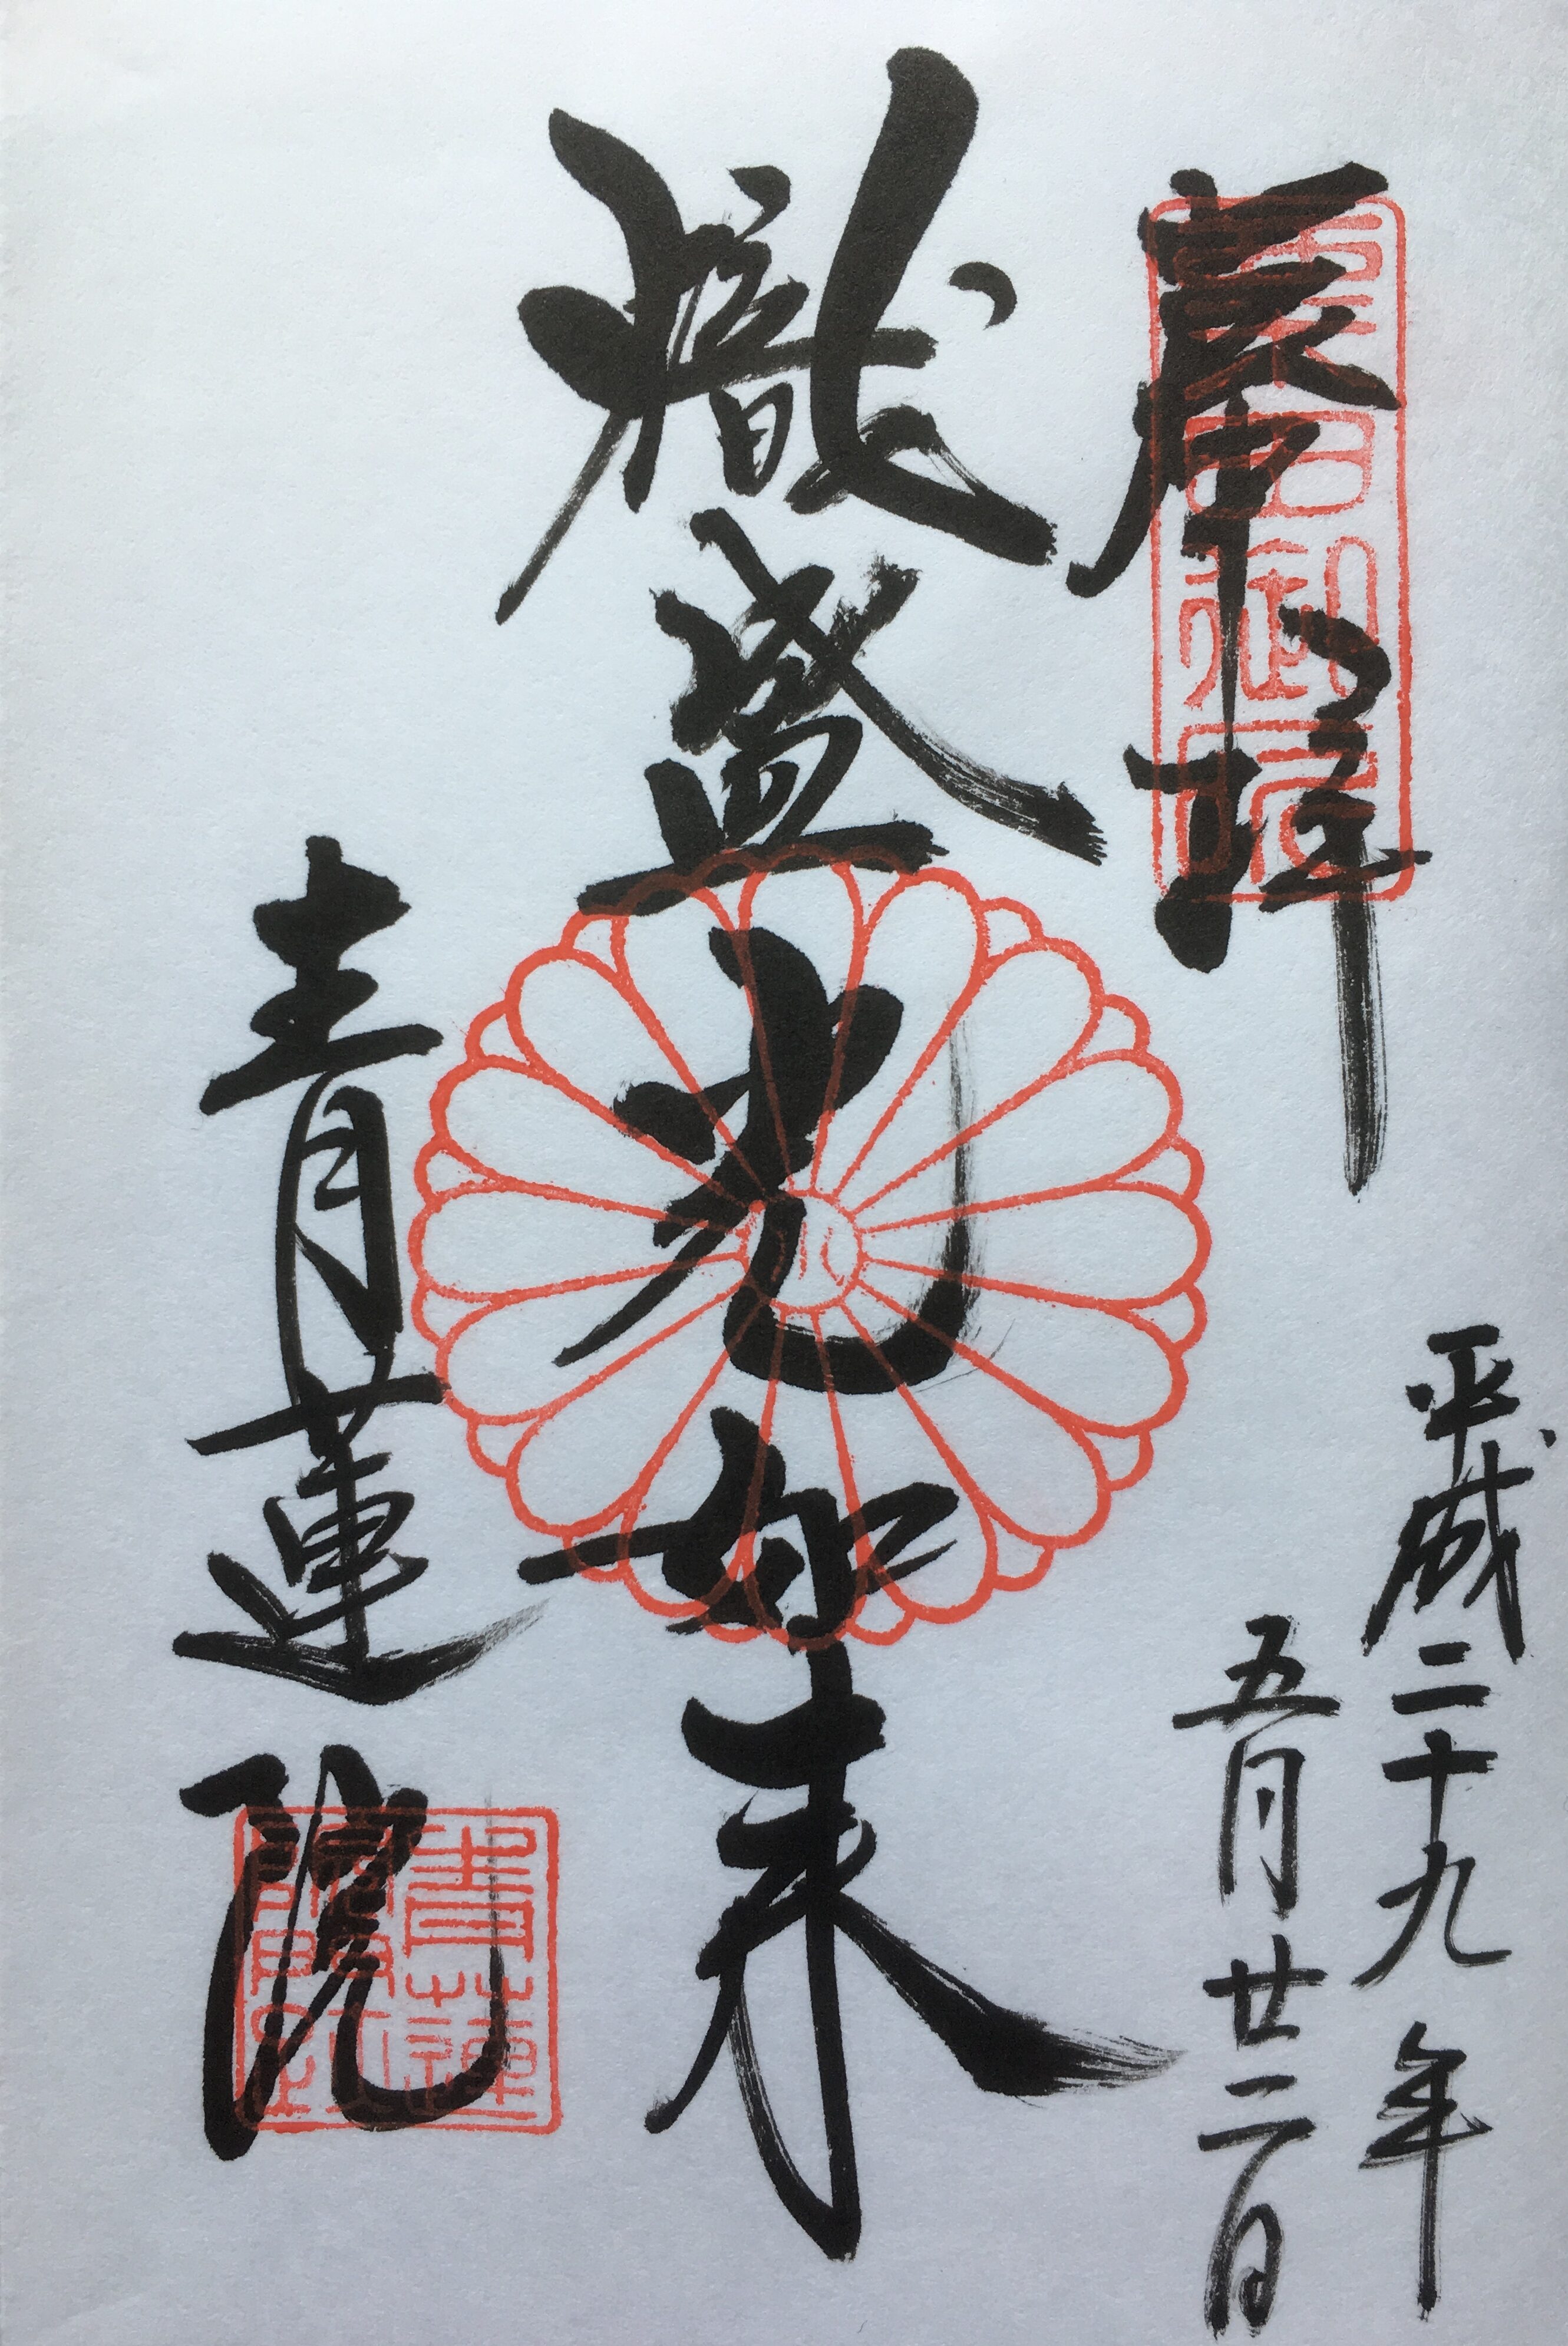 奉拝
粟田御所
平成二十九年
五月廿二日
熾盛光如来
青蓮院
青蓮
院門跡